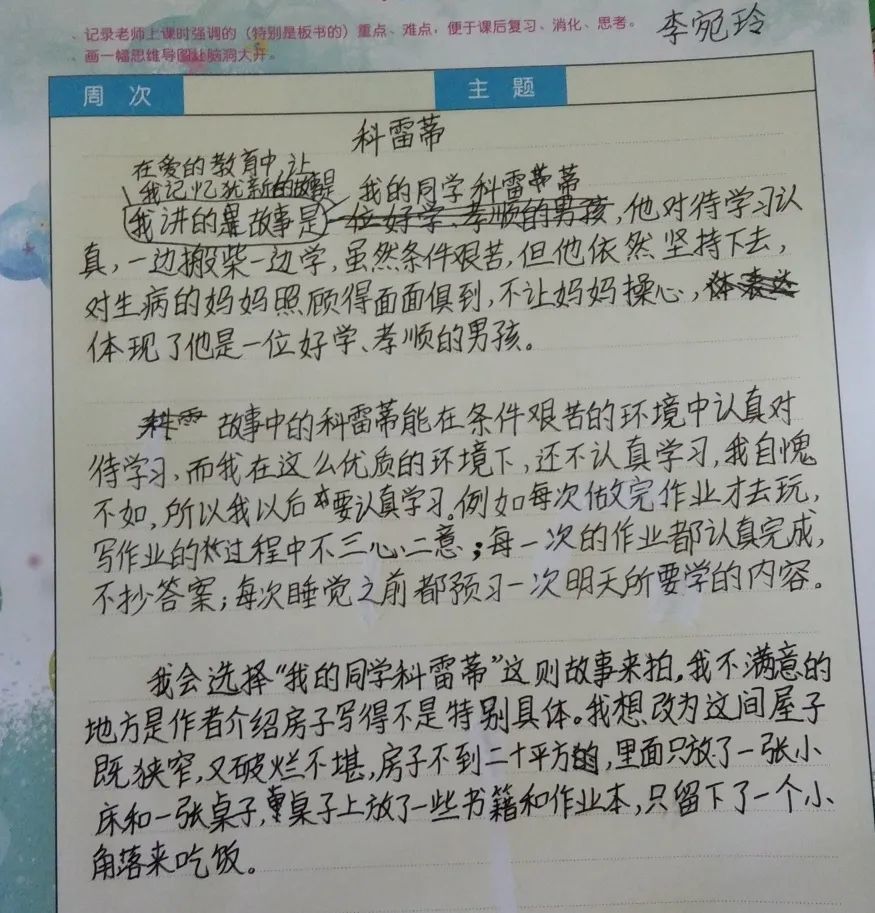 、记录老师上课时强调的（特别是板书的）重点、难点，便于课后复习、消化、思考。
李宛玲
、画一幅思维导图让脑洞大开。
周 次
主 题
科雷蒂
在爱的教育中,让
我记忆犹新的故事是
我的同学科雷蒂
我讲的是故事是一位好学、孝顺的男孩,他对待学习认
真,一边搬柴一边学,虽然条件艰苦,但他依然坚持下去,
对生病的妈妈照顾得面面俱到,不让妈妈操心,体表达
体现了他是一位好学、孝顺的男孩。
科雷 故事中的科雷蒂能在条件艰苦的环境中认真对
待学习,而我在这么优质的环境下,还不认真学习,我自愧
不如,所以我以后要认真学习。例如每次做完作业才去玩,
写作业的过程中不三心二意;每一次的作业都认真完成,
不抄答案;每次睡觉之前都预习一次明天所要学的内容。
我会选择“我的同学科雷蒂”这则故事来拍。我不满意的
地方是作者介绍房子写得不是特别具体。我想改为这间屋子
既狭窄,又破烂不堪,房子不到二十平方,里面只放了一张小
床和一张桌子,桌子上放了一些书籍和作业本,只留下了一个小
角落来吃饭。